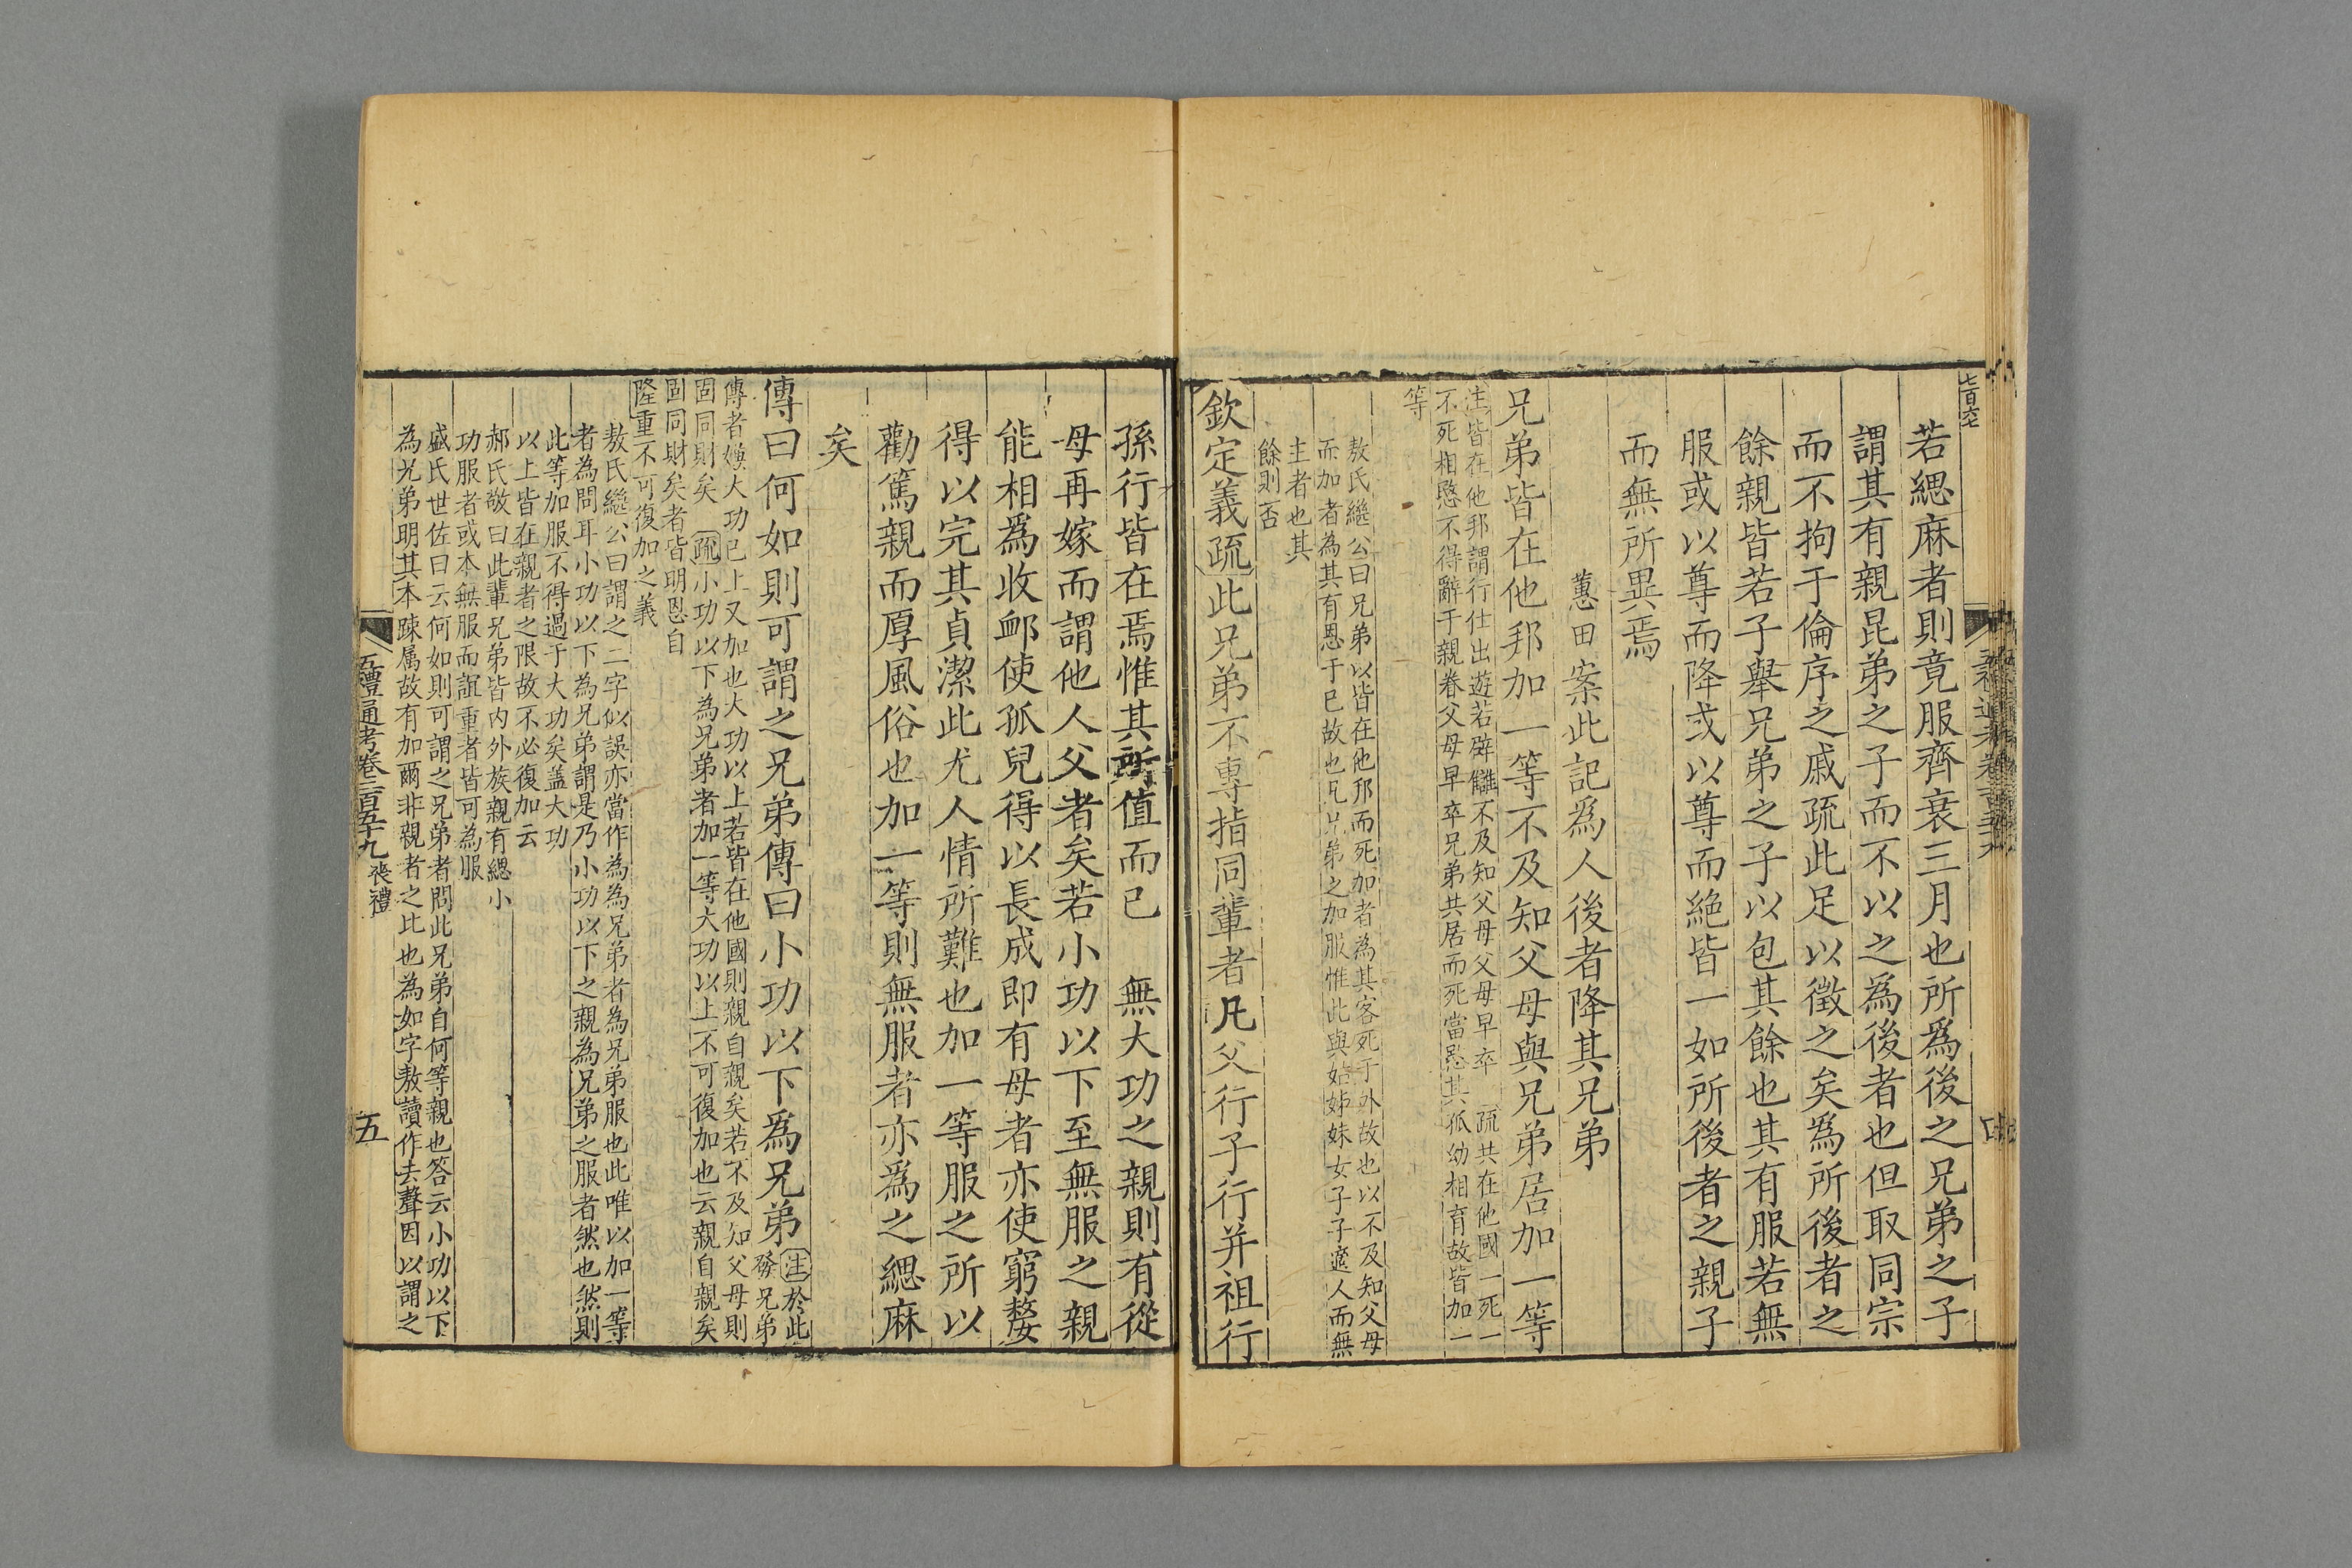 若緦麻者則竟服齊衰三月也所爲後之兄弟之子
謂其有親昆弟之子而不以之為後者也但取同宗
而不拘于倫序之戚疏此足以徵之矣為所後者之
餘親皆若子舉兄弟之子以包其餘也其有服若無
服或以尊而降或以尊而絶皆一如所後者之親子
而無所異焉
蕙田案此記爲人後者降其兄弟
兄弟皆在他邦加一等不及知父母與兄弟居加一等
注皆在他邦謂行仕出遊若辟讎不及知父母父母早卒 疏共在他國一死一
不死相愍不得辭于親眷父母早卒兄弟共居而死當愍其孤幼相育故皆加一
等
敖氏繼公曰兄弟以皆在他邦而死加者為其客死于外故也以不及知父母
而加者為其有恩于已故也凡兄弟之加服惟此與姑姊妹女子子適人而無
主者也其
餘則否
欽定義疏此兄弟不專指同輩者凡父行子行并祖行
孫行皆在焉惟其所值而已 無大功之親則有從
母再嫁而謂他人父者矣若小功以下至無服之親
能相爲收䘏使孤兒得以長成即有母者亦使窮嫠
得以完其貞潔此尤人情所難也加一等服之所以
勸篤親而厚風俗也加一等則無服者亦爲之緦麻
矣
傳曰何如則可謂之兄弟傳曰小功以下爲兄弟 注於此
發兄弟
傳者嫌大功已上又加也大功以上若皆在他國則親自親矣若不及知父母則
固同財矣 疏小功以下為兄弟者加一等大功以上不可復加也云親自親矣
固同財矣者皆明恩自
隆重不可復加之義
敖氏繼公曰謂之二字似誤亦當作為為兄弟者為兄弟服也此唯以加一等
者為問耳小功以下為兄弟謂是乃小功以下之親為兄弟之服者然也然則
此等加服不得過于大功矣盖大功
以上皆在親者之限故不必復加云
郝氏敬曰此輩兄弟皆内外族親有緦小
功服者或本無服而誼重者皆可為服
盛氏世佐曰云何如則可謂之兄弟者問此兄弟自何等親也答云小功以下
為兄弟明其本疎属故有加爾非親者之比也為如字敖讀作去聲因以謂之
五禮通考卷二百五十九 喪禮
五